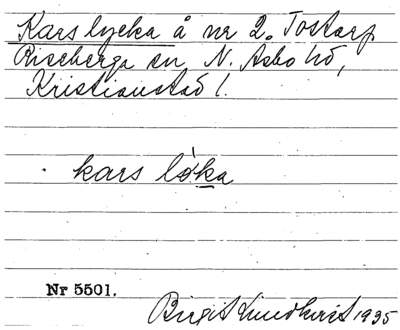 Kars lycka å nr 2. Tostarp
Riseberga sn, N. Åsbo hd,
Kristianstad l.
kars lo̍ka
Nr 5501.
Birgit Lundkvist 1935